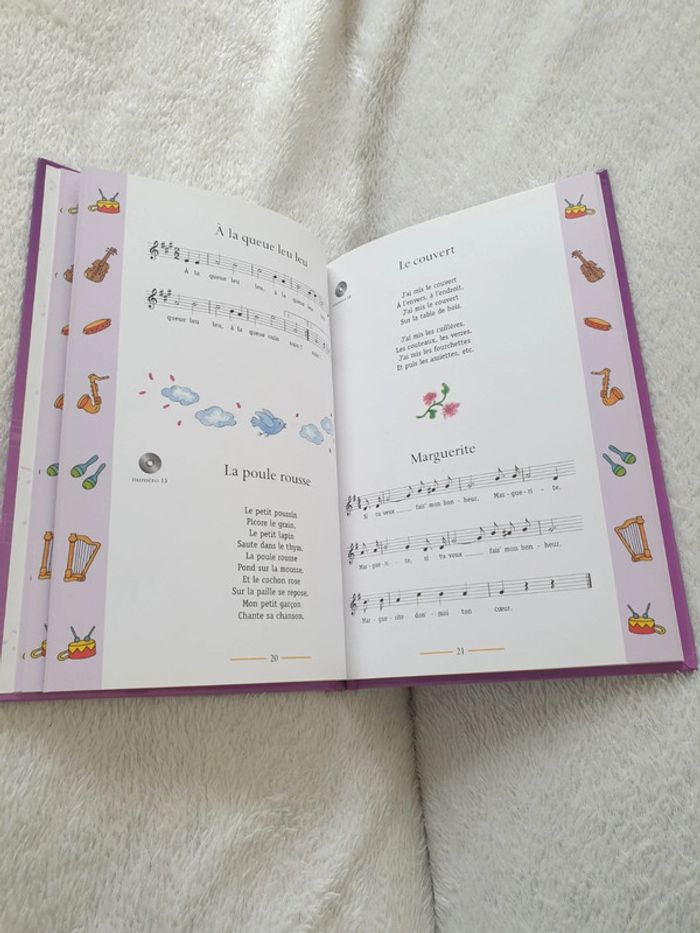 À la queue leu leu
À la queue leu leu, à la queue leu leu,
queue leu leu, à la queue
numéro 13
La poule rousse
Le petit poussin
Picore le grain,
Le petit lapin
Saute dans le thym,
La poule rousse
Pond sur la mousse,
Et le cochon rose
Sur la paille se repose,
Mon petit garçon
Chante sa chanson,
20
Le couvert
J'ai mis le couvert
À l'envers, à l'endroit,
J'ai mis le couvert
Sur la table de bois.
J'ai mis les cuillères,
Les couteaux, les verres,
J'ai mis les fourchettes
Et puis les assiettes, etc.
Marguerite
Si tu veux fais' mon bon - heur, Mar - gue - ri - te,
Mar - gue - ri - te, si tu veux fais' mon bon - heur,
Mar - gue - rite don' - moi ton cœur.
21